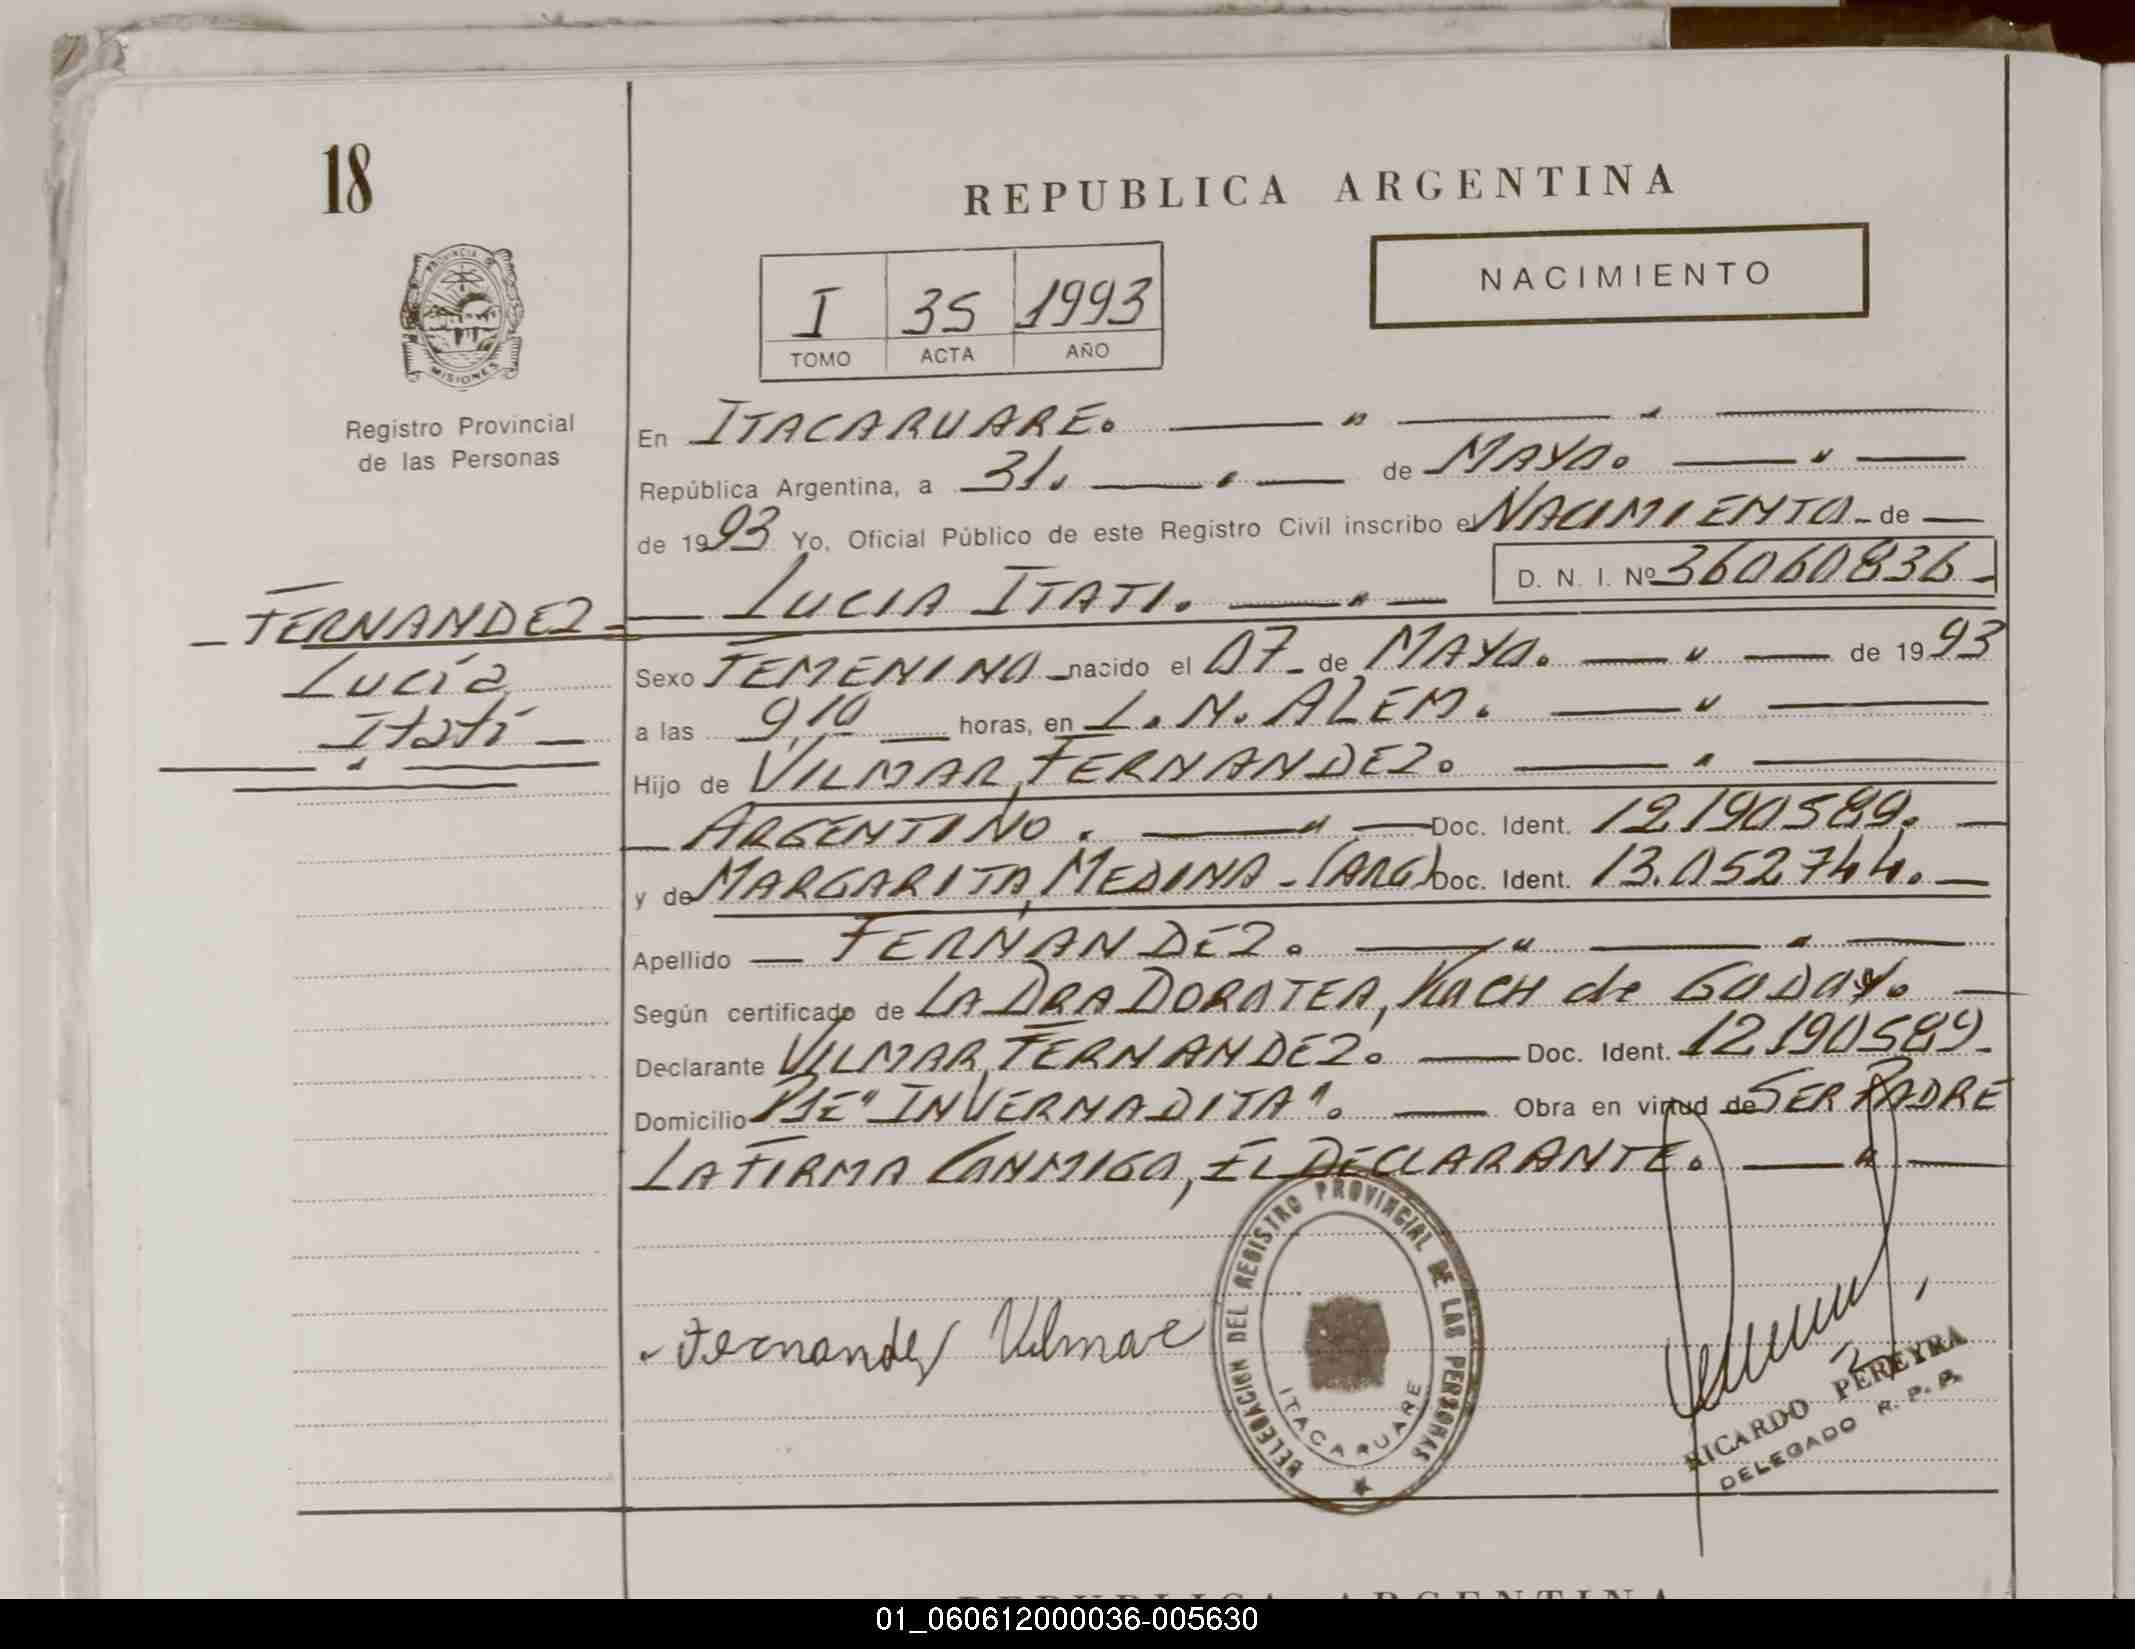 18
REPUBLICA ARGENTINA
NACIMIENTO
I 35 1993
TOMO ACTA AÑO
PROVINCIA DE
MISIONES
Registro Provincial
de las Personas
En ITACARUARE.
República Argentina, a 31. de MAYO.
de 1993 Yo, Oficial Público de este Registro Civil inscribo el NACIMIENTO - de
D. N. I. Nº 36060836-
LUCIA ITATI.
- FERNANDEZ -
Lucía
Itatí -
Sexo FEMENINO - nacido el 07 - de MAYO. de 1993
a las 9,10 horas, en L. N. ALEM.
Hijo de VILMAR, FERNANDEZ.
ARGENTINO. Doc. Ident. 12.190589.
y de MARGARITA, MEDINA - (ARG) Doc. Ident. 13.052744.
Apellido FERNANDEZ.
Según certificado de LA DRA DOROTEA, KOCH de GODOY.
Declarante VILMAR, FERNANDEZ. Doc. Ident. 12.190589-
Domicilio "INVERNADITA". Obra en virtud de SER PADRE
LA FIRMA CONMIGO, EL DECLARANTE.
DELEGACION DEL REGISTRO PROVINCIAL DE LAS PERSONAS
ITACARUARE
Fernandez Vilmar
RICARDO PEREYRA
DELEGADO R. P. P.
REPUBLICA ARGENTINA
01_060612000036-005630